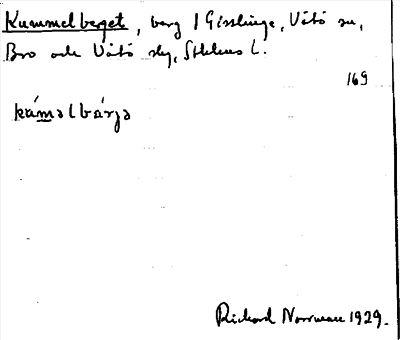 Kummelberget, berg i Gisslinge, Vätö sn,
Bro och Vätö skg, Sthlms L.
169
kúməlbárjə
Rickard Norrman 1929.